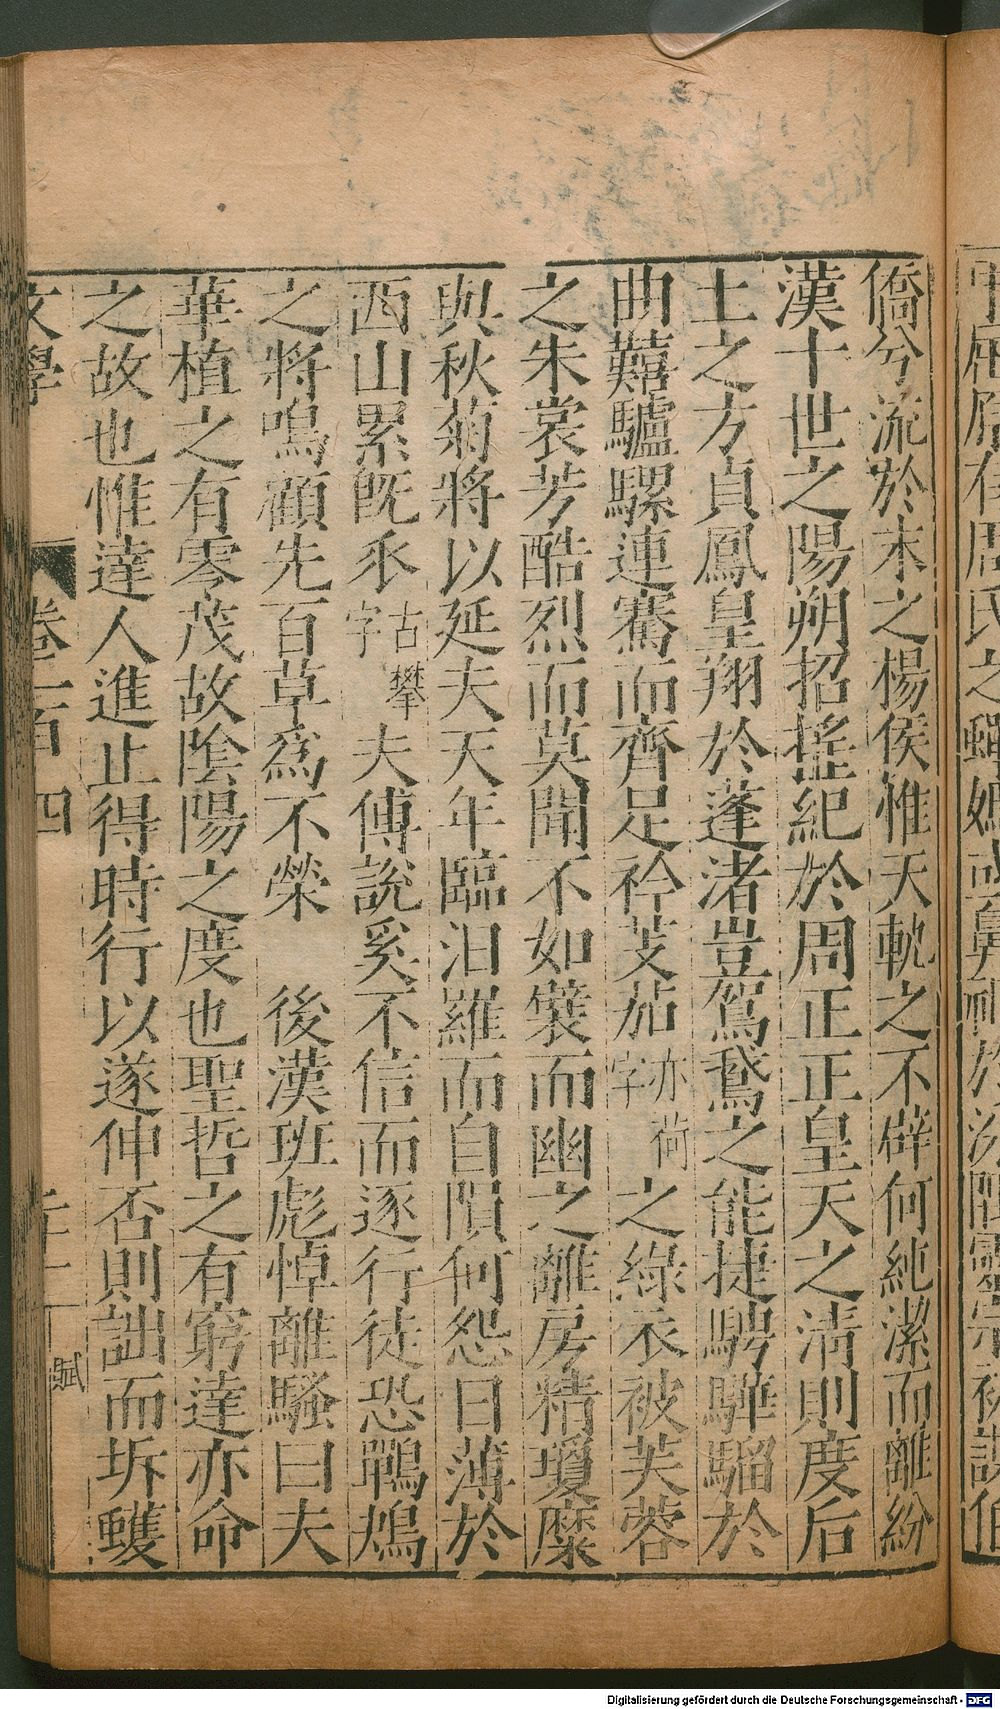 僑兮流於末之楊侯惟天軌之不辟何純潔而離紛
漢十世之陽朔招搖紀於周正正皇天之清則度后
土之方貞鳳皇翔於蓬渚豈駕鵞之能捷騁驊騮於
曲囏驢騾連蹇而齊足衿芰茄亦荷字之綠衣被芙蓉
之朱裳芳酷烈而莫聞不如襞而幽之離房精瓊糜
與秋菊將以延夫天年臨汨羅而自隕何怨日薄於
西山累既乑古攀字夫傅說奚不信而逐行徒恐鷤鴂
之將鳴顧先百草為不榮 後漢班彪悼離騷曰夫
華植之有零茂故陰陽之度也聖哲之有窮達亦命
之故也惟達人進止得時行以遂伸否則詘而坼蠖
文學 卷一百四 賦
Digitalisierung gefördert durch die Deutsche Forschungsgemeinschaft - DFG